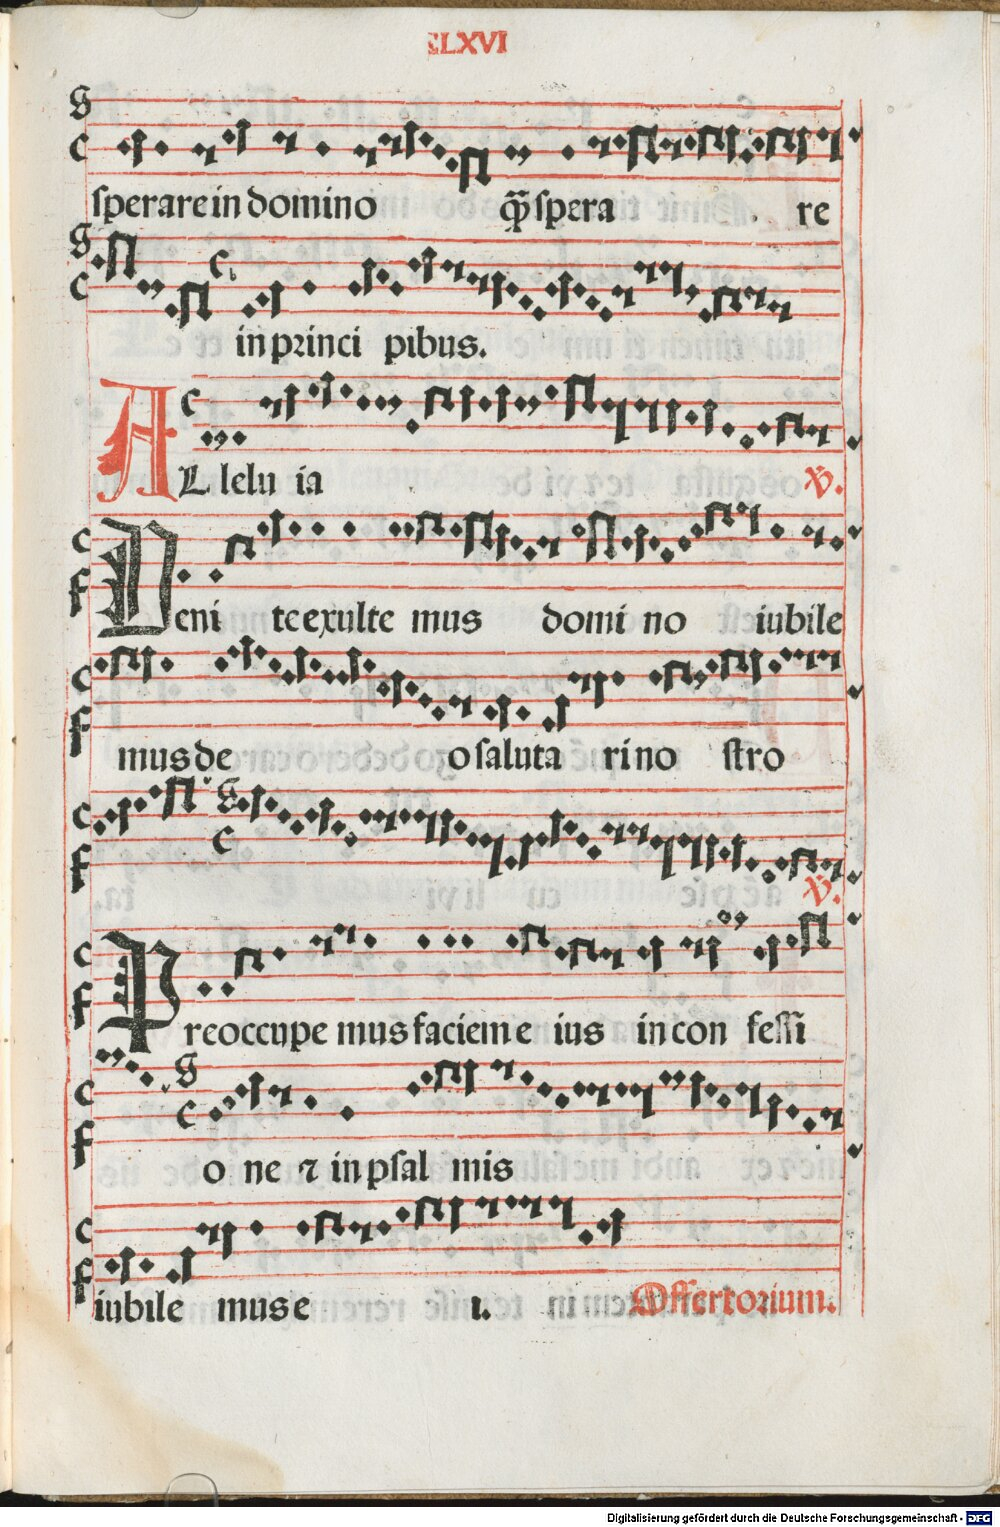 CLXVI
sperare in domino q̃ spera re
in princi pibus.
ALlelu ia ℣.
Veni te exulte mus domi no iubile
mus de o saluta ri no stro
℣.
Preoccupe mus faciem e ius in con fessi
o ne ⁊ in psal mis
iubile mus e ı. Offertorium.
Digitalisierung gefördert durch die Deutsche Forschungsgemeinschaft - DFG